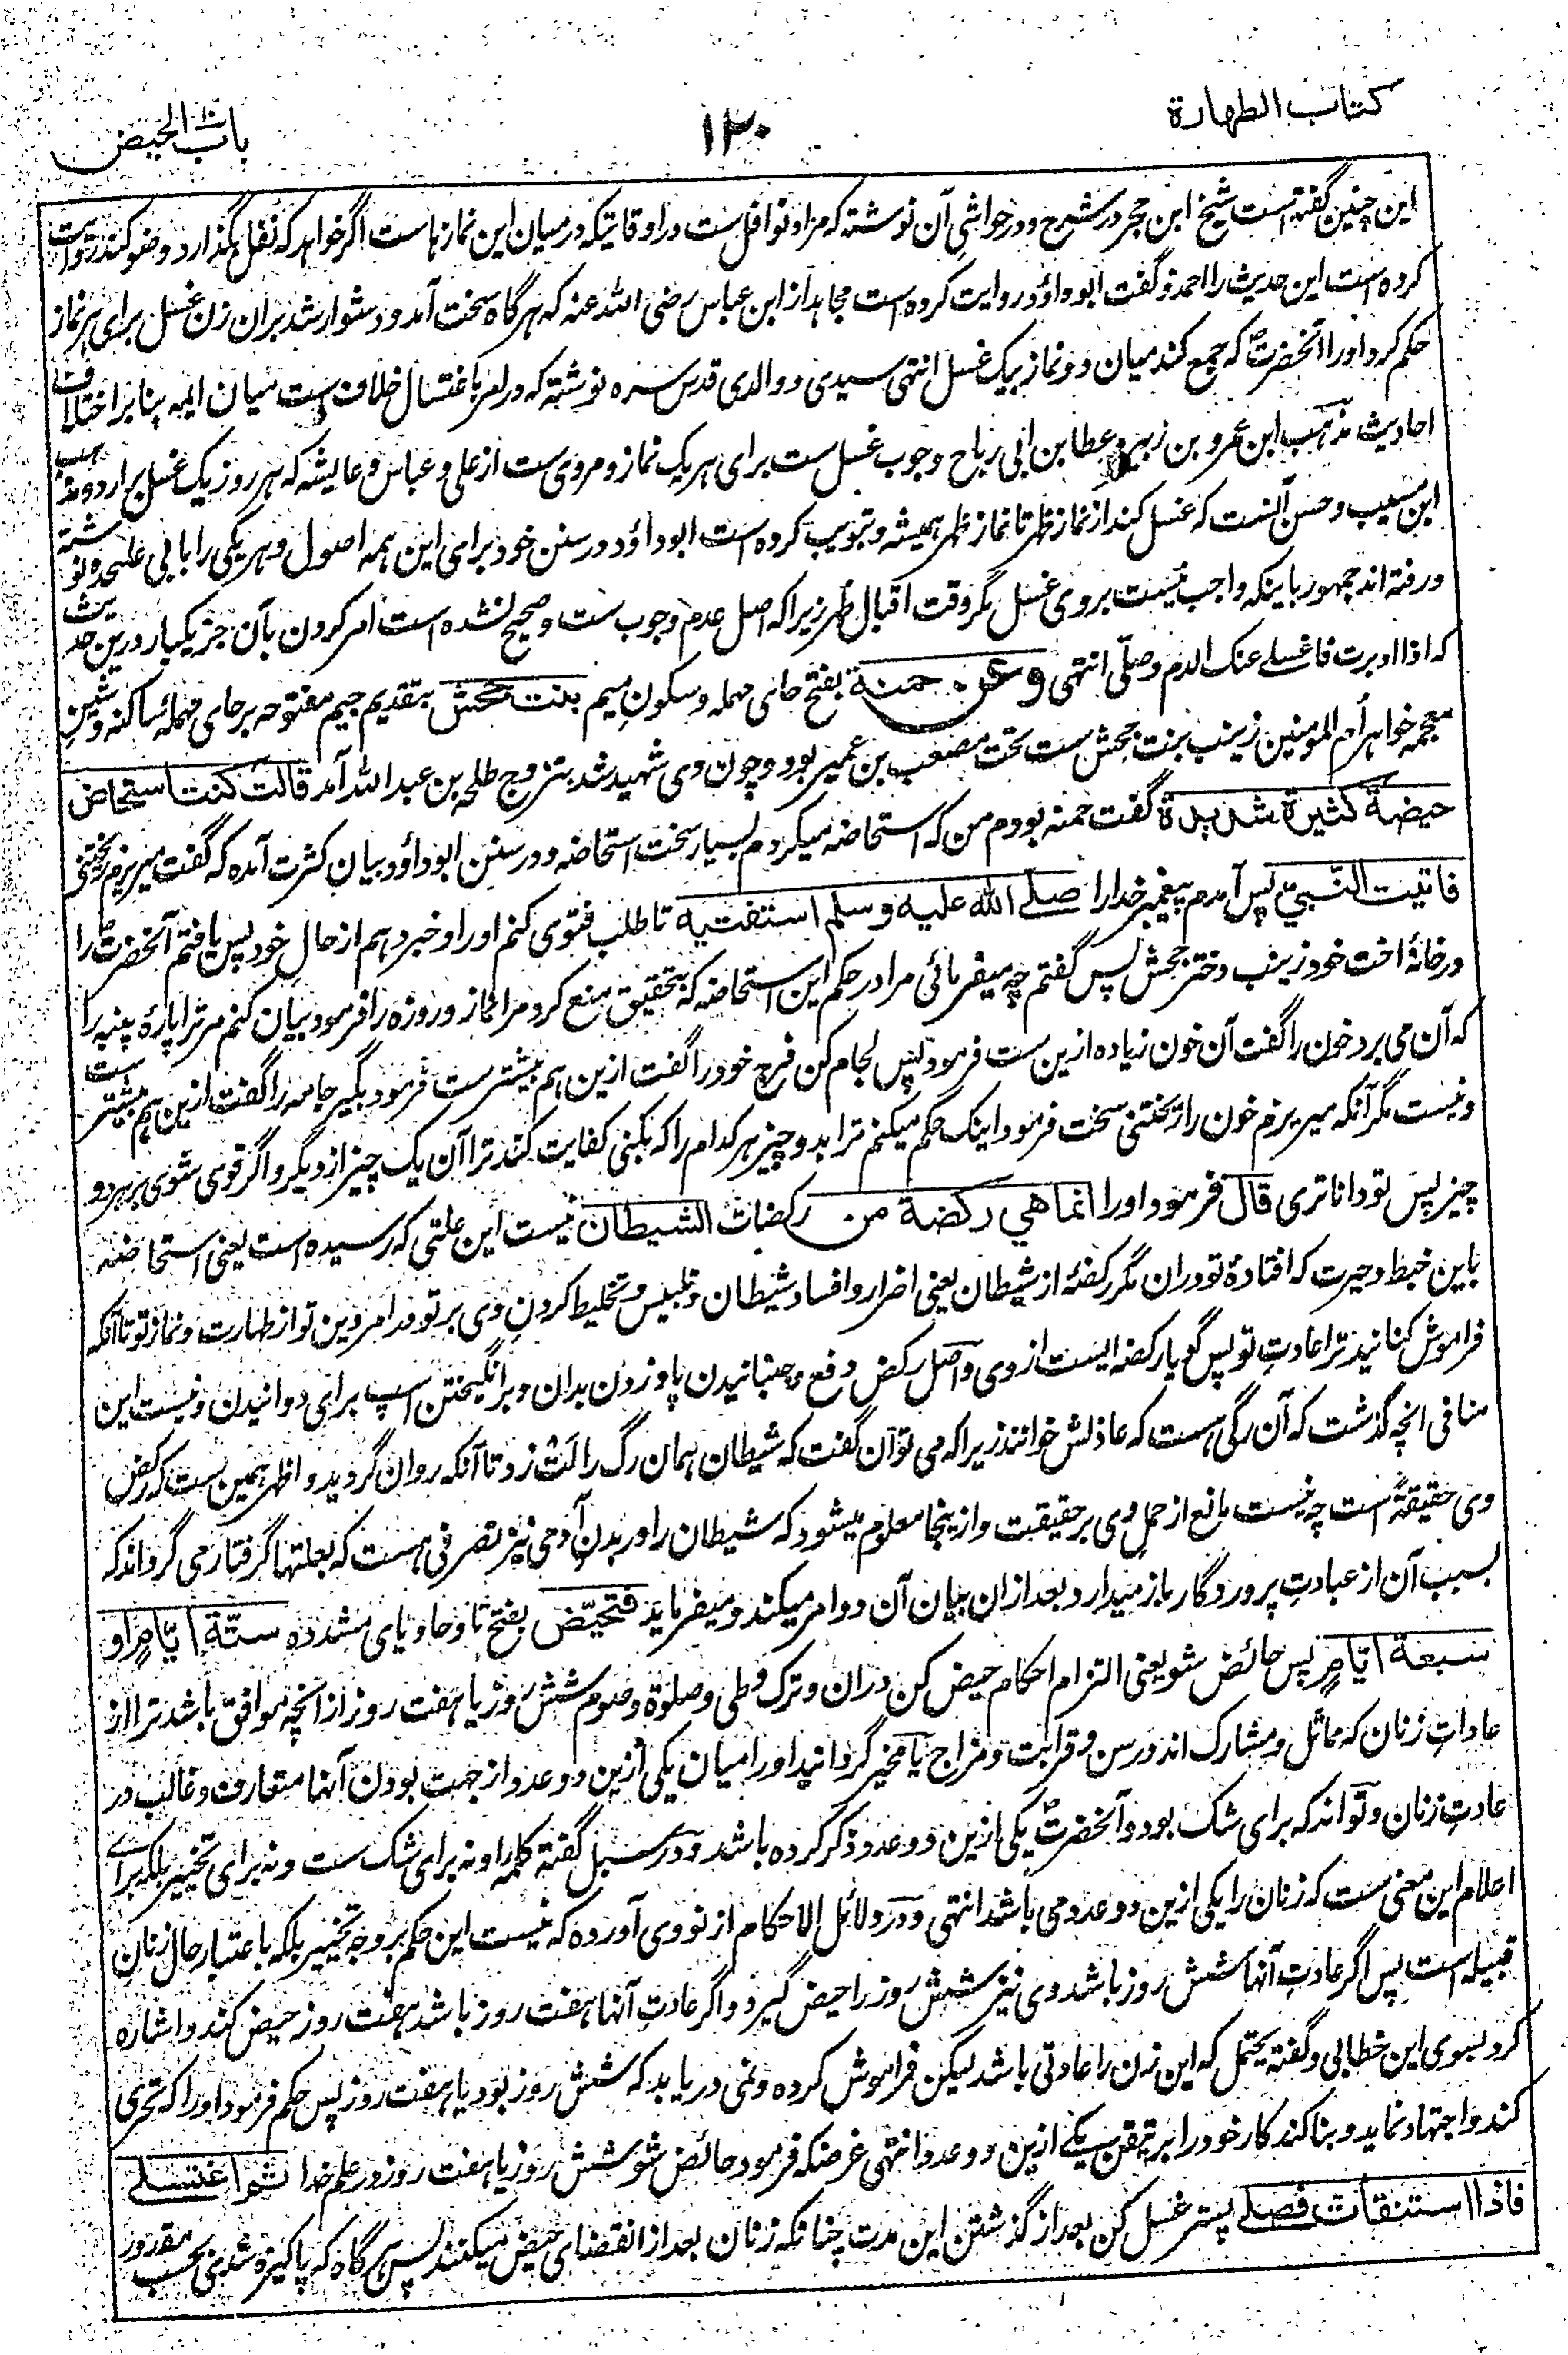 کتاب الطهارة
۱۳۰
باب الحیض
این چنین گفته است شیخ ابن حجر در شرح و در حواشی آن نوشته که مراد نوافل ست در اوقاتیکه در میان این نمازها ست اگر خواهد که نفل بگذارد وضو کند روایت
کرده است این حدیث را احمد و گفت ابوداؤد روایت کرده است مجاهد از ابن عباس رضی الله عنه که هرگاه سخت آمد و دشوار شد بران زن غسل برای هر نماز
حکم کرد او را آنحضرتؐ که جمع کند میان دو نماز بیک غسل انتهی سیدی و والدی قدس سره نوشته که در امر باغتسال خلاف ست میان ایمه بنابر اختلاف
احادیث مذهب ابن عمر و بن زبیر و عطا بن ابی رباح وجوب غسل ست برای هر یک نماز و مروی ست از علی و عباس و عایشه که هر روز یک غسل برارد و مذهب
ابن مسیب و حسن آنست که غسل کند از نماز ظهر تا نماز ظهر همیشه و تبویب کرده است ابوداؤد در سنن خود برای این همه اصول و هر یکی را بابی علحده نوشته
و رفته اند جمهور باینکه واجب نیست بروی غسل مگر وقت اقبال طهر زیرا که اصل عدم وجوب ست و صحیح نشده است امر کردن بآن جز یکبار درین حدیث
که اذا ادبرت فاغسلے عنک الدم وصلّی انتهی وعن حمنة بفتح حای مهمله و سکون میم بنت جحش بتقدیم جیم مفتوحه بر حای مهملهٔ ساکنه و شین
معجمه خواهر أم المومنین زینب بنت جحش ست تحت مصعب بن عمیر بود و چون وی شهید شد بتزوج طلحه بن عبد الله آمد قالت کنت استحاض
حیضة کثیرة شدیدة گفت حمنه بودم من که استحاضه میکردم بسیار سخت استحاضه و در سنن ابوداؤد بیان کثرت آمده که گفت میریزم ریختنی
فاتیت النّبیّ پس آمدم پیغمبر خدا را صلے الله علیه وسلم استفتیه تا طلب فتوی کنم او را و خبر دهم از حال خود پس یافتم آنحضرتؐ را
در خانهٔ اخت خود زینب دختر جحش پس گفتم چه میفرمائی مرا در حکم این استحاضه که بتحقیق منع کرد مرا نماز و روزه را فرمود بیان کنم مر ترا پارهٔ پنبه را
که آن می برد خون را گفت آن خون زیاده ازین ست فرمود پس لجام کن فرج خود را گفت ازین هم بیشتر ست فرمود بگیر جامه را گفت ازین هم بیشتر ست
و نیست مگر آنکه میریزم خون را ریختنی سخت فرمود اینک حکم میکنم ترا بدو چیز هر کدام را که بکنی کفایت کند ترا آن یک چیز از دیگر و اگر قوی شوی بر هر دو
چیز پس تو داناتری قال فرمود او را انما هي رکضة من رکضات الشیطان نیست این علتی که رسیده است یعنی استحاضه
باین خبط و حیرت که افتادهٔ تو دران مگر رکضهٔ از شیطان یعنی اضرار و افساد شیطان و تلبیس و تخلیط کردن وی بر تو در امر دین تو از طهارت و نماز تو تا آنکه
فراموش کنانید ترا عادتِ تو پس گویا رکضه ایست از وی و اصل رکض دفع و جنبانیدن پا و زدن بدان و برانگیختن اسپ برای دوانیدن و نیست این
منافی انچه گذشت که آن رگی ست که عاذلش خوانند زیرا که می توان گفت که شیطان همان رگ را لَت زد تا آنکه روان گردید و اظهر همین ست که رکض
وی حقیقةً است چه نیست مانع از حمل وی بر حقیقت و ازینجا معلوم میشود که شیطان را در بدن آدمی نیز تصرفی هست که بعلتها گرفتار می گرداند که
بسبب آن از عبادتِ پروردگار باز میدارد و بعد ازان بیان آن دو امر میکند و میفرماید فتحیّض بفتح تا و حا و یای مشدده ستّة ایّامٍ او
سبعة ایّامٍ پس حائض شو یعنی التزام احکام حیض کن دران و ترک وطی و صلوٰة و صوم شش روز یا هفت روز از انچه موافق باشد ترا از
عاداتِ زنان که مماثل و مشارک اند در سن و قرابت و مزاج یا مخیر گردانید او را میان یکی ازین دو عدد از جهت بودن آنها متعارف و غالب در
عادتِ زنان و تواند که برای شک بود و آنحضرتؐ یکی ازین دو عدد ذکر کرده باشد و در سبل گفته کلمه او نه برای شک ست و نه برای تخییر بلکه برای
اعلام این معنی ست که زنان را یکی ازین دو عدد می باشد انتهی و در دلائل الاحکام از نووی آورده که نیست این حکم بر وجه تخییر بلکه باعتبار حال زنانِ
قبیله است پس اگر عادتِ آنها شش روز باشد وی نیز شش روز را حیض گیرد و اگر عادتِ آنها هفت روز باشد هفت روز حیض کند و اشاره
کرد بسوی این خطابی و گفته یحتمل که این زن را عادتی باشد لیکن فراموش کرده و نمی دریابد که شش روز بود یا هفت روز پس حکم فرمود او را که تحری
کند و اجتهاد نماید و بنا کند کار خود را بر تیقن بیکے ازین دو عدد انتهی غرضکه فرمود حائض شو شش روز یا هفت روز در علم خدا ثم اغتسلے
فاذا استنقأت فصلے پستر غسل کن بعد از گذشتن این مدت چنانکه زنان بعد از انقضای حیض میکنند پس هرگاه که پاکیزه شدنی بحسب مقدور